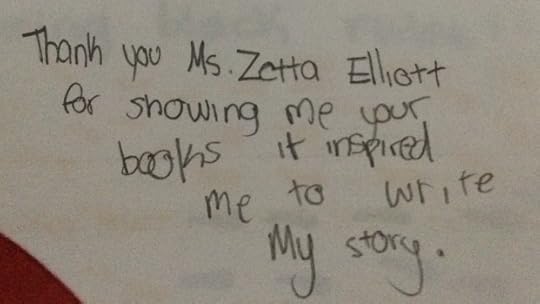 Thank you Ms. Zetta Elliott
for showing me your
books it inspired
me to write
My story.